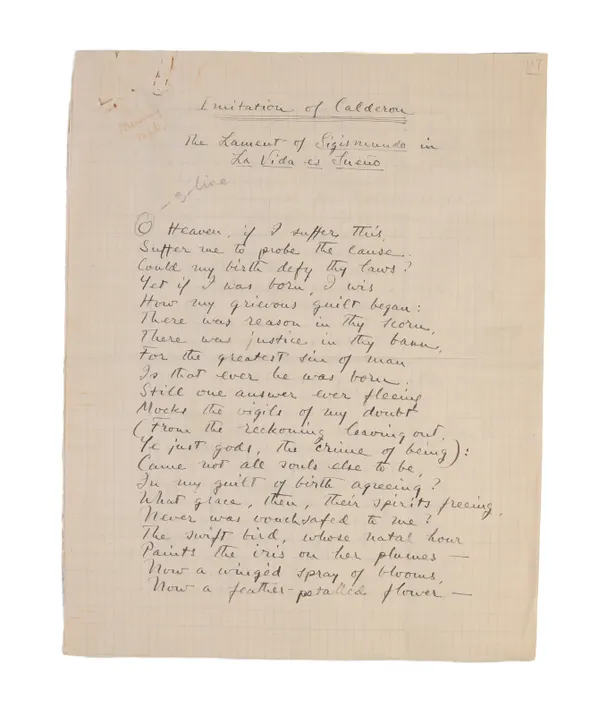 Imitation of Calderon
The Lament of Sigismundo in
La Vida es Sueño
3-line
O Heaven, if I suffer this,
Suffer me to probe the cause.
Could my birth defy thy laws?
Yet if I was born, I wis
How my grievous guilt began:
There was reason in thy scorn,
There was justice in thy bann,
For the greatest sin of man
Is that ever he was born.
Still one answer ever fleeing
Mocks the vigils of my doubt
(From the reckoning leaving out,
Ye just gods, the crime of being):
Came not all souls else to be,
In my guilt of birth agreeing?
What grace, then, their spirits freeing,
Never was vouchsafed to me?
The swift bird, whose natal hour
Paints the iris on her plumes —
Now a wingèd spray of blooms,
Now a feather-petalled flower —